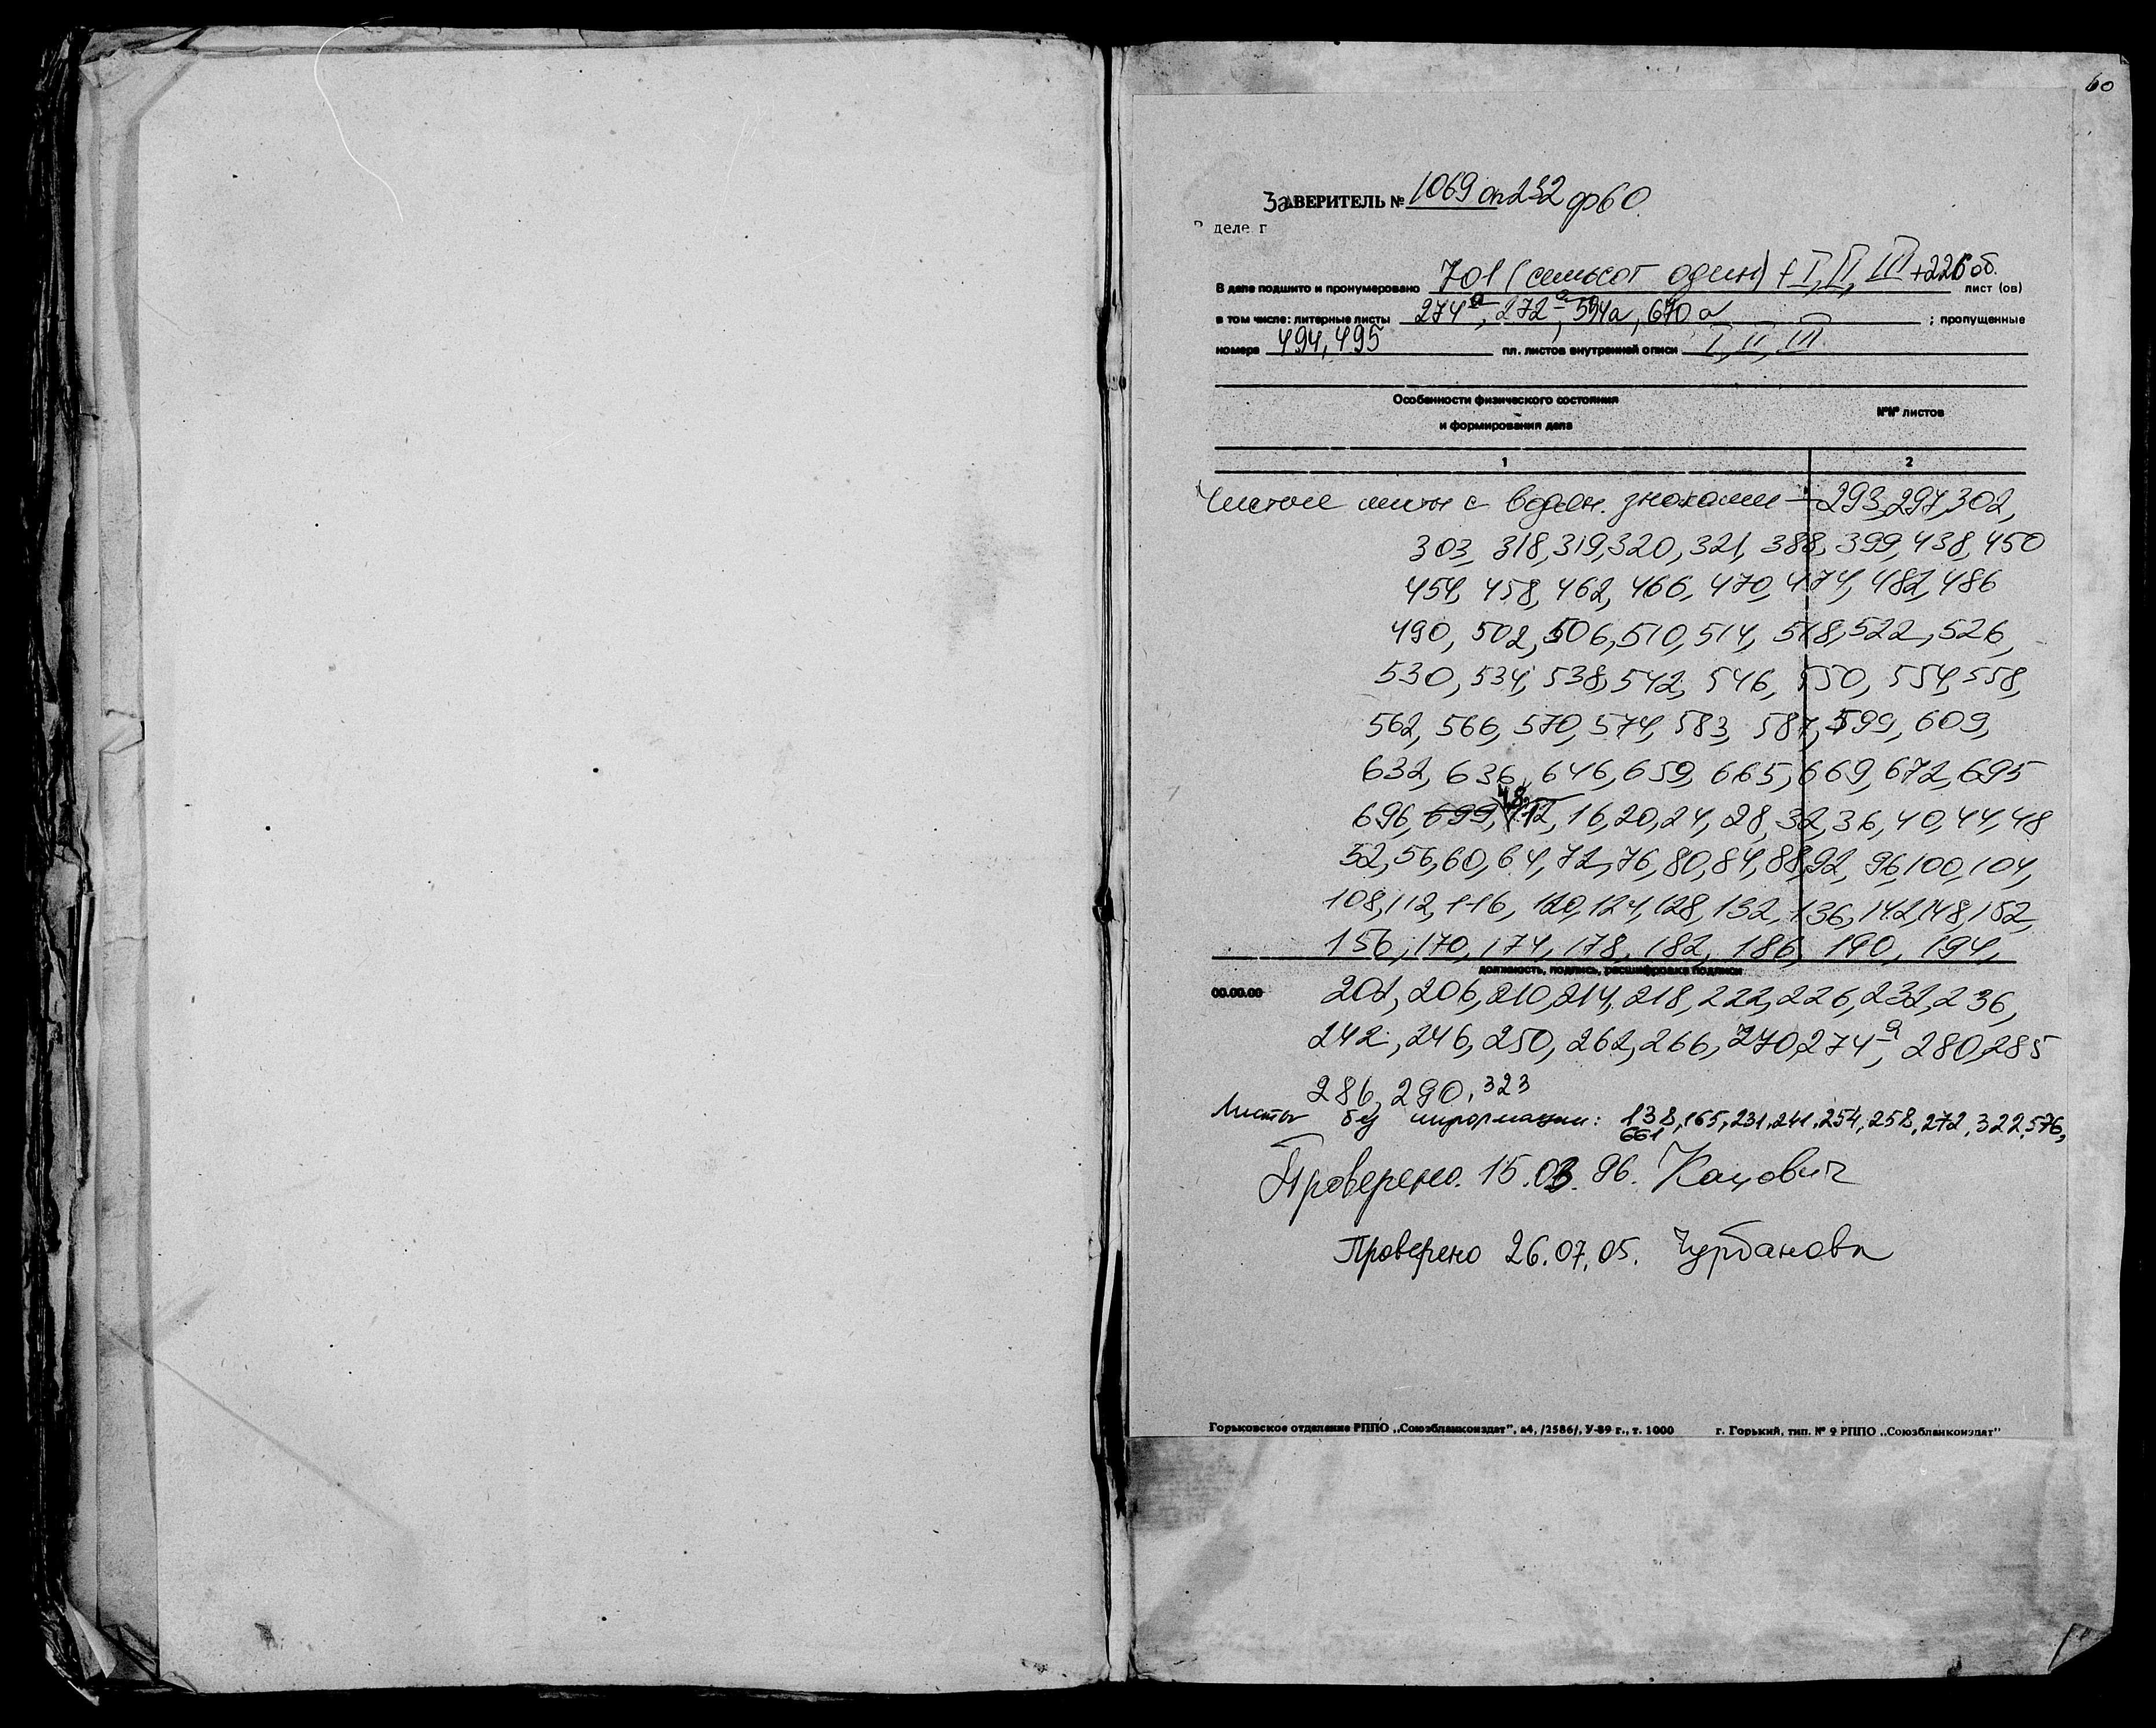 60
ЗаВЕРИТЕЛЬ № 1069 оп 232 ф 60
деле г
В деле подшито и пронумеровано 701 (семьсот один) + I, II, III +226 об. лист (ов)
в том числе: литерные листы 274а, 272а, 594а, 670а ; пропущенные
номера 494, 495 пл. листов внутренней описи I, II, III
Особенности физического состояния
и формирования дела
№№ листов
1 2
Чистые листы с водян. знаками – 293, 297, 302,
303, 318, 319, 320, 321, 388, 399, 438, 450
454, 458, 462, 466, 470, 474, 482, 486
490, 502, 506, 510, 514, 518, 522, 526,
530, 534, 538, 542, 546, 550, 554, 558,
562, 566, 570, 574, 583, 587, 599, 609,
632, 636, 646, 659, 665, 669, 672, 695
696, 699, 4, 8, 12, 16, 20, 24, 28, 32, 36, 40, 44, 48
52, 56, 60, 64, 72, 76, 80, 84, 88, 92, 96, 100, 104,
108, 112, 116, 120, 124, 128, 132, 136, 142, 148, 152,
156, 170, 174, 178, 182, 186, 190, 194,
должность, подпись, расшифровка подписи
00.00.00 202, 206, 210, 214, 218, 222, 226, 232, 236,
242, 246, 250, 262, 266, 270, 274а, 280, 285
286, 290, 323
Листы без информации: 138, 165, 231, 241, 254, 258, 272, 322, 576,
661
Проверено. 15.03.96. Кацович
Проверено 26.07.05. Чурбанова
Горьковское отделение РППО „Союзбланкоиздат", а4, /2586/, У-89 г., т. 1000 г. Горький, тип. № 9 РППО „Союзбланкоиздат"